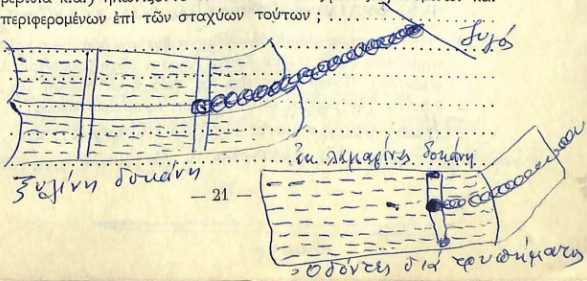 περιφερομένων ἐπὶ τῶν σταχύων τούτων ;
ζυγός
ξυλίνη δοκάνη
ἐκ λαμαρίνης δοκάνη
— 21 —
Ὀδόντες διά τρυπήματος